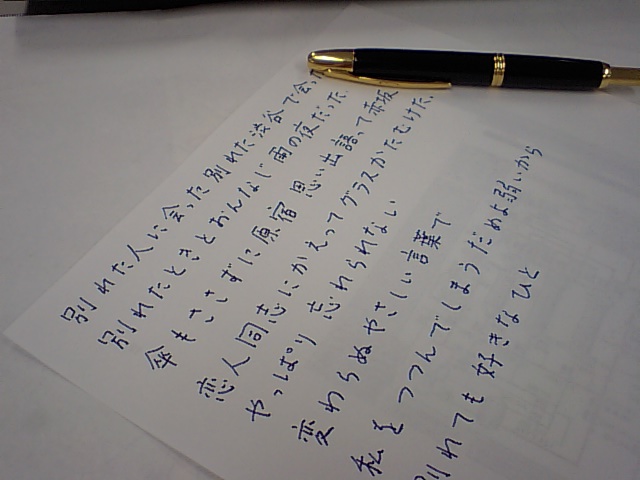 別れた人に会った別れた渋谷で会っ
別れたときとおんなじ雨の夜だった
傘もささずに原宿 思い出語って赤坂
恋人同志にかえって グラスかたむけた
やっぱり 忘れられない
変わらぬやさしい言葉で
私をつつんでしまうだめよ弱いから
別れても好きなひと